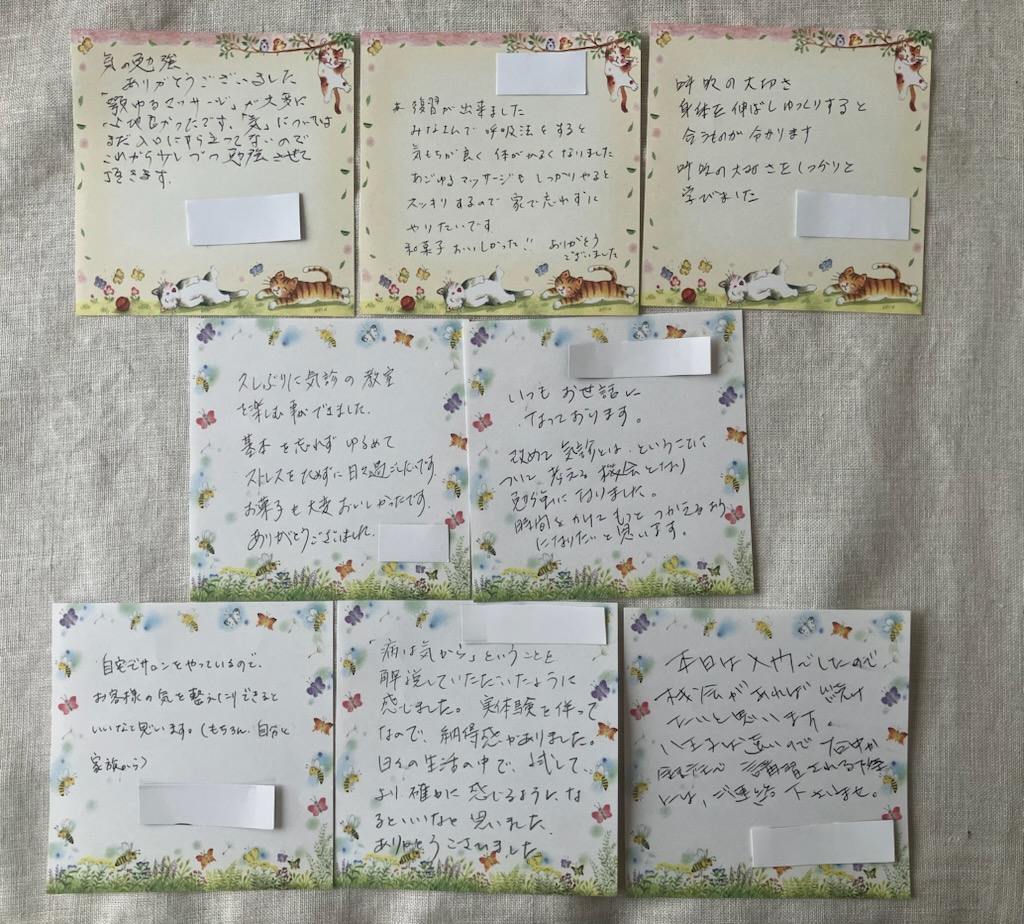 気の勉強
ありがとうございました
「顎ゆるマッサージ」が大変に
心地良かったです。「気」については
まだ入口にすら立ってないので
これから少しづつ勉強させて
頂きます。
復習が出来ました
みなさんで呼吸法をすると
気もちが良く 体がかるくなりました
あごゆるマッサージも しっかりやると
スッキリするので 家で忘れずに
やりたいです
和菓子おいしかった!! ありがとう
ございました
呼吸の大切さ
身体を伸ばしゆっくりすると
合うものが分かります
呼吸の大切さをしっかりと
学びました
久しぶりに気診の教室
を楽しむ事ができました。
基本を忘れず ゆるめて
ストレスをためずに日々過ごしたいです。
お菓子も大変おいしかったです。
ありがとうございました。
いつもお世話に
なっております。
改めて気診とは、ということに
ついて考える機会となり
勉強になりました。
時間をかけてもっとつかえるよう
になりたいと思います。
自宅でサロンをやっているので、
お客様の気を整えたりできると
いいなと思います。(もちろん、自分と
家族から)
「病は気から」ということを
解説していただいたように
感じました。実体験を伴って
なので、納得感がありました。
日々の生活の中で、試して、
より確かに感じるようにな
るといいなと思いました。
ありがとうございました
本日は入門でしたので
機会があれば続け
たいと思います。
八王子は遠いので
講習される際
には、ご連絡下さいませ。